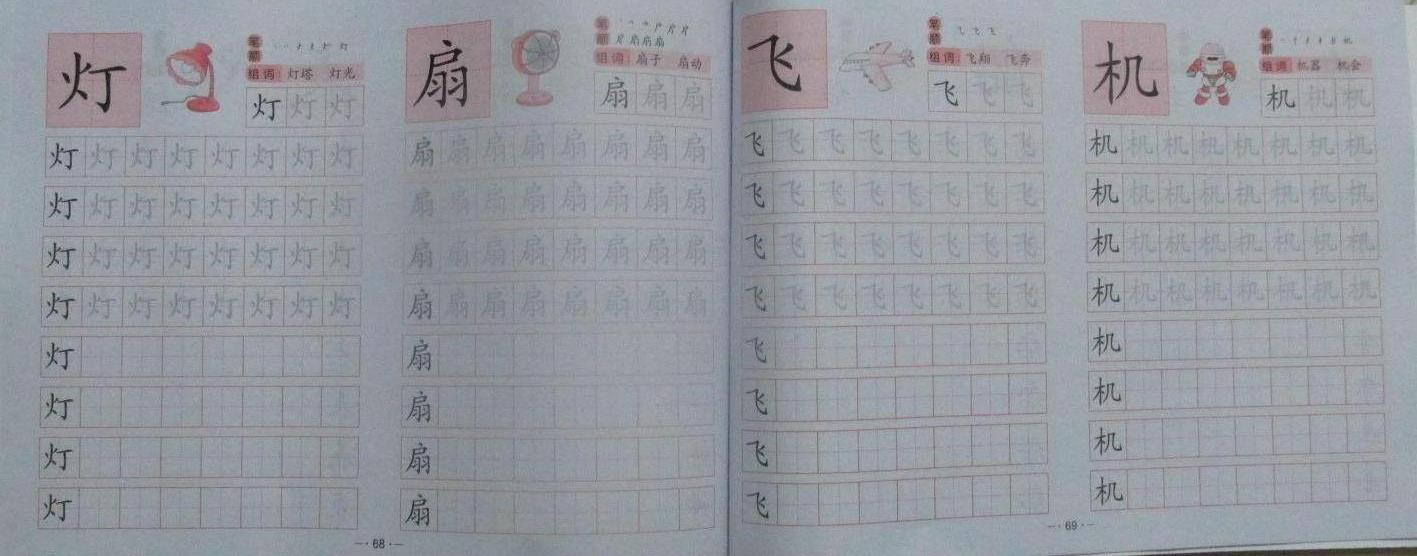 灯
笔顺
组词 灯塔 灯光
灯灯灯
灯灯灯灯灯灯灯灯
灯灯灯灯灯灯灯灯
灯灯灯灯灯灯灯灯
灯灯灯灯灯灯灯灯
灯
灯
灯
灯
扇
笔顺
组词 扇子 扇动
扇扇扇
扇扇扇扇扇扇扇扇
扇扇扇扇扇扇扇扇
扇扇扇扇扇扇扇扇
扇扇扇扇扇扇扇扇
扇
扇
扇
扇
—·68·—
飞
笔顺
组词 飞翔 飞奔
飞飞飞
飞飞飞飞飞飞飞飞
飞飞飞飞飞飞飞飞
飞飞飞飞飞飞飞飞
飞飞飞飞飞飞飞飞
飞
飞
飞
飞
机
笔顺
组词 机器 机会
机机机
机机机机机机机机
机机机机机机机机
机机机机机机机机
机机机机机机机机
机
机
机
机
—·69·—